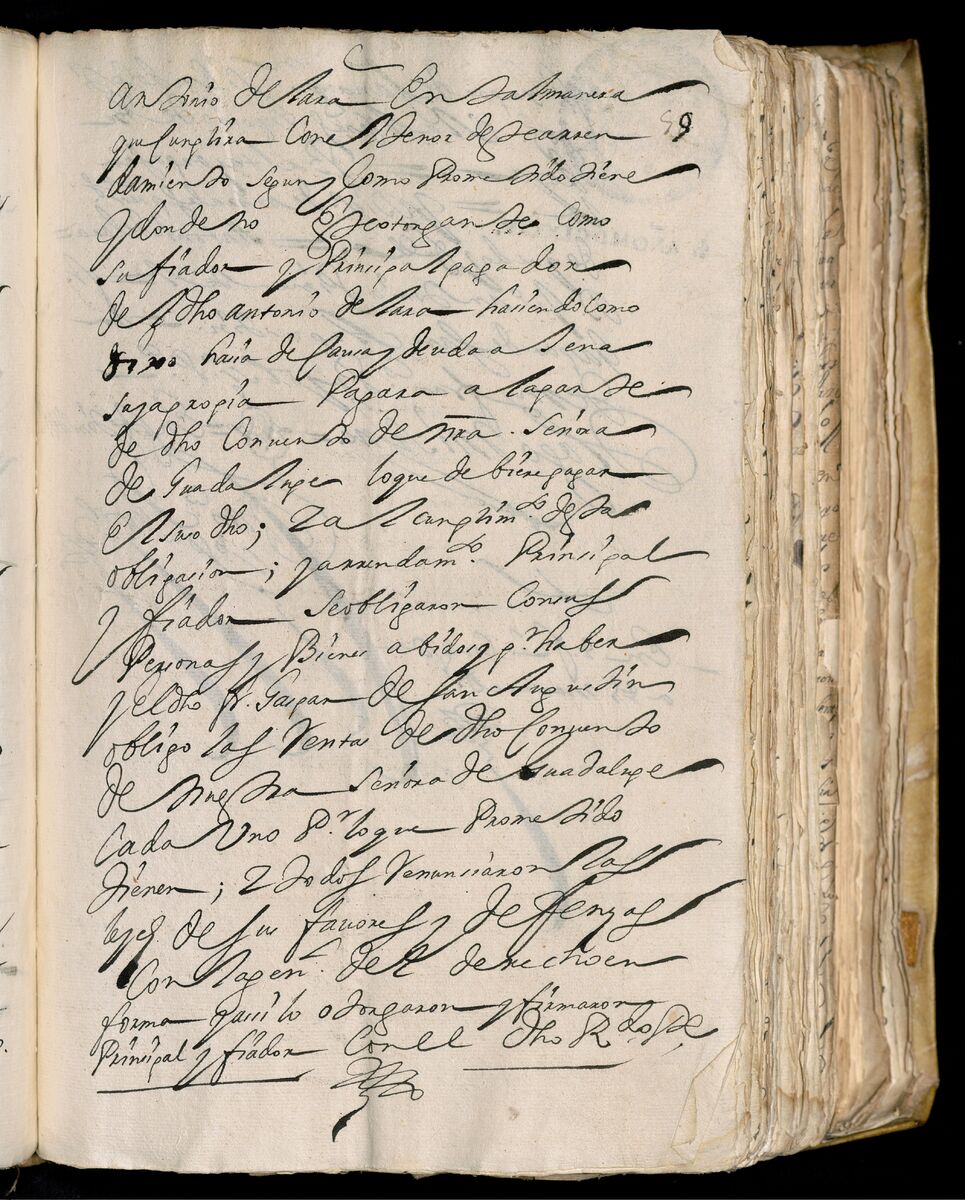 Antonio de lara En tal manera
que Cunplira Con el tenor deste arren
damiento segun y Como Prometido tiene
y donde no este otorgante Como
su fiador y Principal pagador
de el dho antonio de lara hasiendo Como
hasia de Causa y deuda a Jena
suya propia Pagara a la parte
de dho Conuento de nra. Señora
de Guadalupe lo que debiere pagar
El suso dho; Y al cunplimto desta
obligacion; y arrendamto Prinsipal
y fiador se obligaron Con sus
Personas y Bienes abidos y pr haber
y el dho fr. Gaspar de san Augustin
obligo las Rentas de dho Conuento
de nuestra señora de Guadalupe
Cada Uno Pr lo que Prometido
tienen; Y todos Renunciaron las
leyes de sus fauores y defensas
Con la genl. de el derecho en
forma y asi lo otorgaron y firmaron
Prinsipal y fiador Con el dho